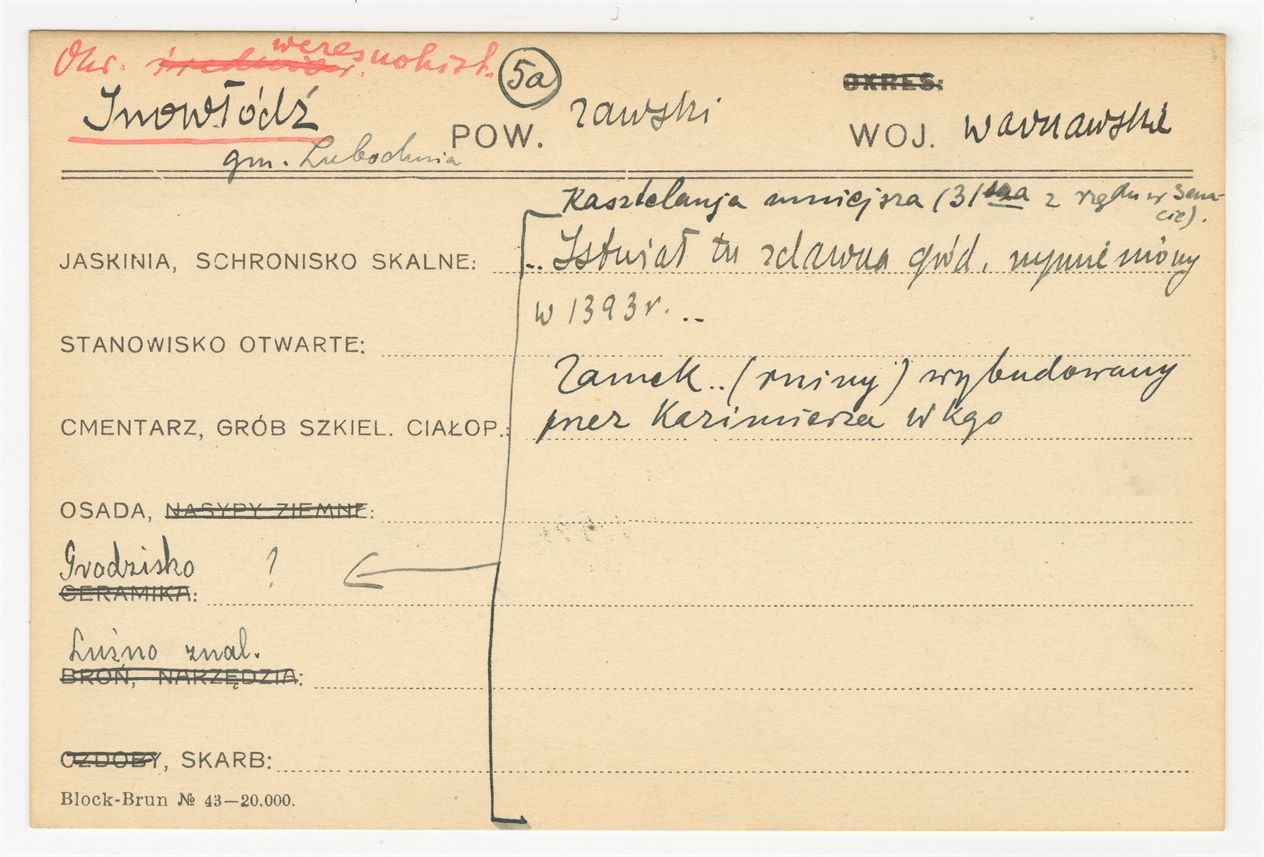 Okr. średniow. wczesnohist. 5a OKRES:
Inowłódź POW. rawski WOJ. warszawskie
gm. Lubochnia
Kasztelanja mniejsza (31sza z rzędu w Sena-
cie).
JASKINIA, SCHRONISKO SKALNE: .. Istniał tu zdawna gród, wymieniony
w 1393 r. ..
STANOWISKO OTWARTE:
Zamek .. (ruiny) wybudowany
CMENTARZ, GRÓB SZKIEL. CIAŁOP.: przez Kazimierza Wkgo
OSADA, NASYPY ZIEMNE:
Grodzisko ?
CERAMIKA:
Luźno znal.
BROŃ, NARZĘDZIA:
OZDOBY, SKARB:
Block-Brun № 43—20.000.